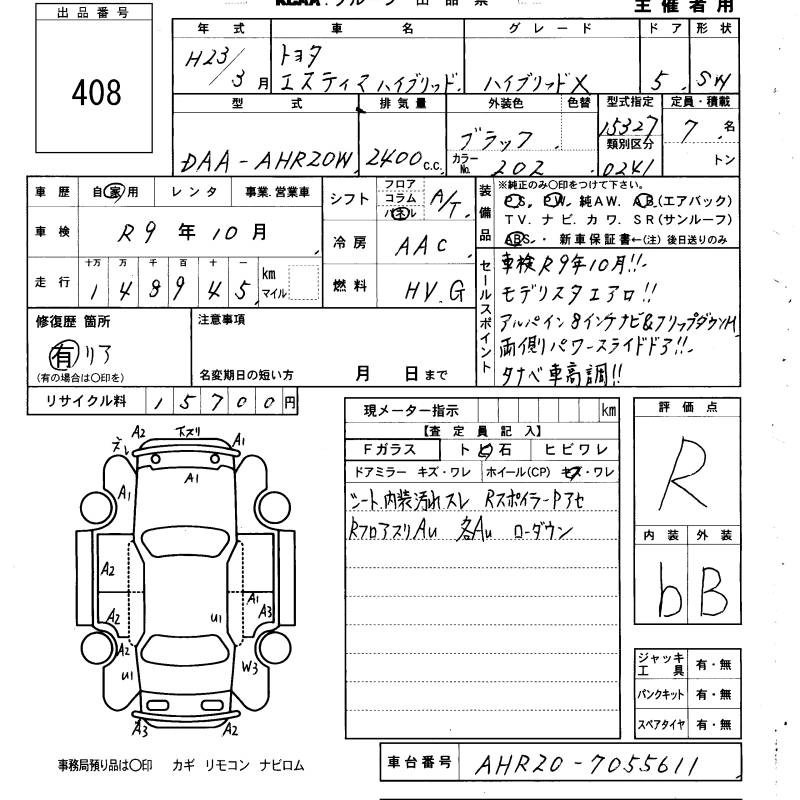 KCAA グループ 出品票
主催者用
出品番号
408
年式 車名 グレード ドア 形状
H23/3月 トヨタ エスティマハイブリッド ハイブリッドX 5 SW
型式 排気量 外装色 色替 型式指定 定員・積載
DAA-AHR20W 2400c.c. ブラック 15327 7名
カラーNo. 202 類別区分 0241 トン
車歴 自家用 レンタ 事業.営業車
車検 R9年10月
走行 十万 万 千 百 十 一 km マイル
148945
シフト フロア コラム パネル A/T
冷房 AAC
燃料 HV.G
装備品 ※純正のみ○印をつけて下さい。
P.S. P.W. 純AW. A.B.(エアバック)
TV. ナビ. カワ. SR(サンルーフ)
ABS.・ 新車保証書←(注) 後日送りのみ
セールスポイント
車検R9年10月!!
モデリスタエアロ!!
アルパイン8インチナビ&フリップダウンM
両側パワースライドドア!!
タナベ車高調!!
修復歴 箇所
有 リア
(有の場合は○印を)
注意事項
名変期日の短い方 月 日まで
リサイクル料 15700円
現メーター指示 km
【査定員記入】
Fガラス トビ石 ヒビワレ
ドアミラー キズ・ワレ ホイール(CP) キズ・ワレ
シート.内装汚れスレ RスポイラーPアセ
RフロアスリAu 各Au ローダウン
評価点
R
内装 外装
b B
ジャッキ工具 有・無
パンクキット 有・無
スペアタイヤ 有・無
A2 下スリ A1
A1 A1
A2
A1
A2 U1 A3
A2
U1 W3
A3 A2
事務局預り品は○印 カギ リモコン ナビロム
車台番号 AHR20-7055611